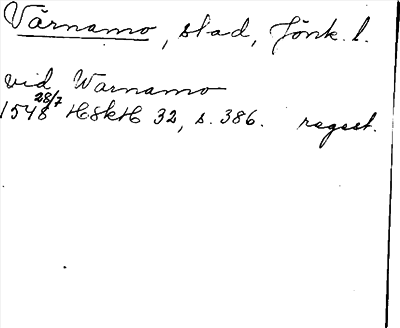 Värnamo, stad, Jönk. l.
vid Warnamo
1548 28/7 HSkH 32, s. 386. regest.